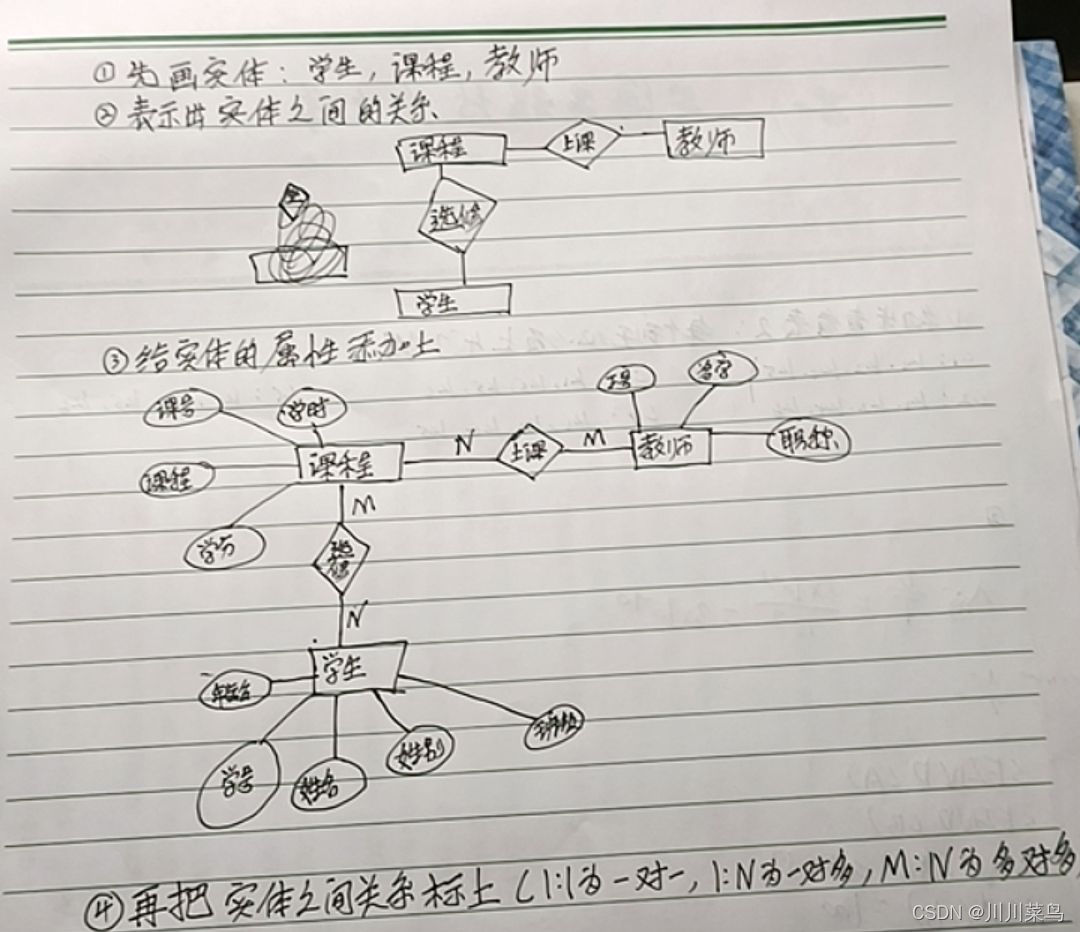 ①先画实体：学生，课程，教师
②表示出实体之间的关系
课程 上课 教师
选修
学生
③给实体的属性添加上
课号 学时
课程 N 上课 M 教师 职称
课程
学分
M
选修
N
学生
年龄
学号 姓名 性别 班级
④再把实体之间关系标上（1:1为一对一，1:N为一对多，M:N为多对多
CSDN @川川菜鸟